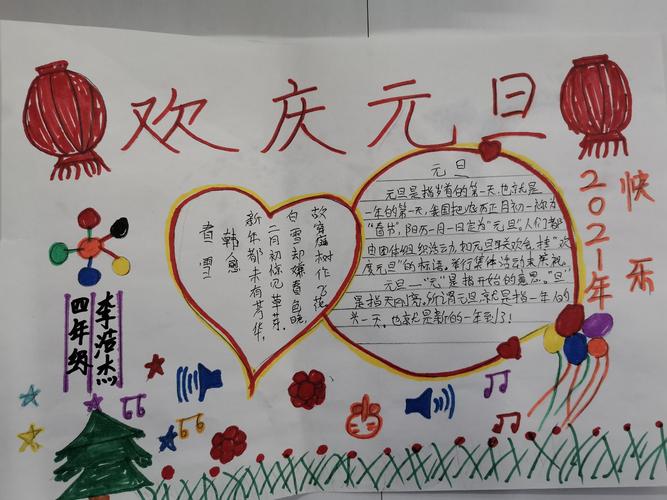 欢庆元旦
快乐
2021年
春雪
韩愈
新年都未有芳华,
二月初惊见草芽。
白雪却嫌春色晚,
故穿庭树作飞花。
元旦
元旦是指岁首的第一天,也就是
一年的第一天,我国把农历正月初一称为
“春节”,阳历一月一日定为“元旦”。人们都
由团体组织活动,如元旦联欢会,挂“欢
度元旦”的标语,举行集体活动来庆祝。
元旦——“元”是指开始的意思。“旦”
是指天明时。所谓元旦就是指一年的
第一天,也就是新的一年到了!
四年级
李浩杰